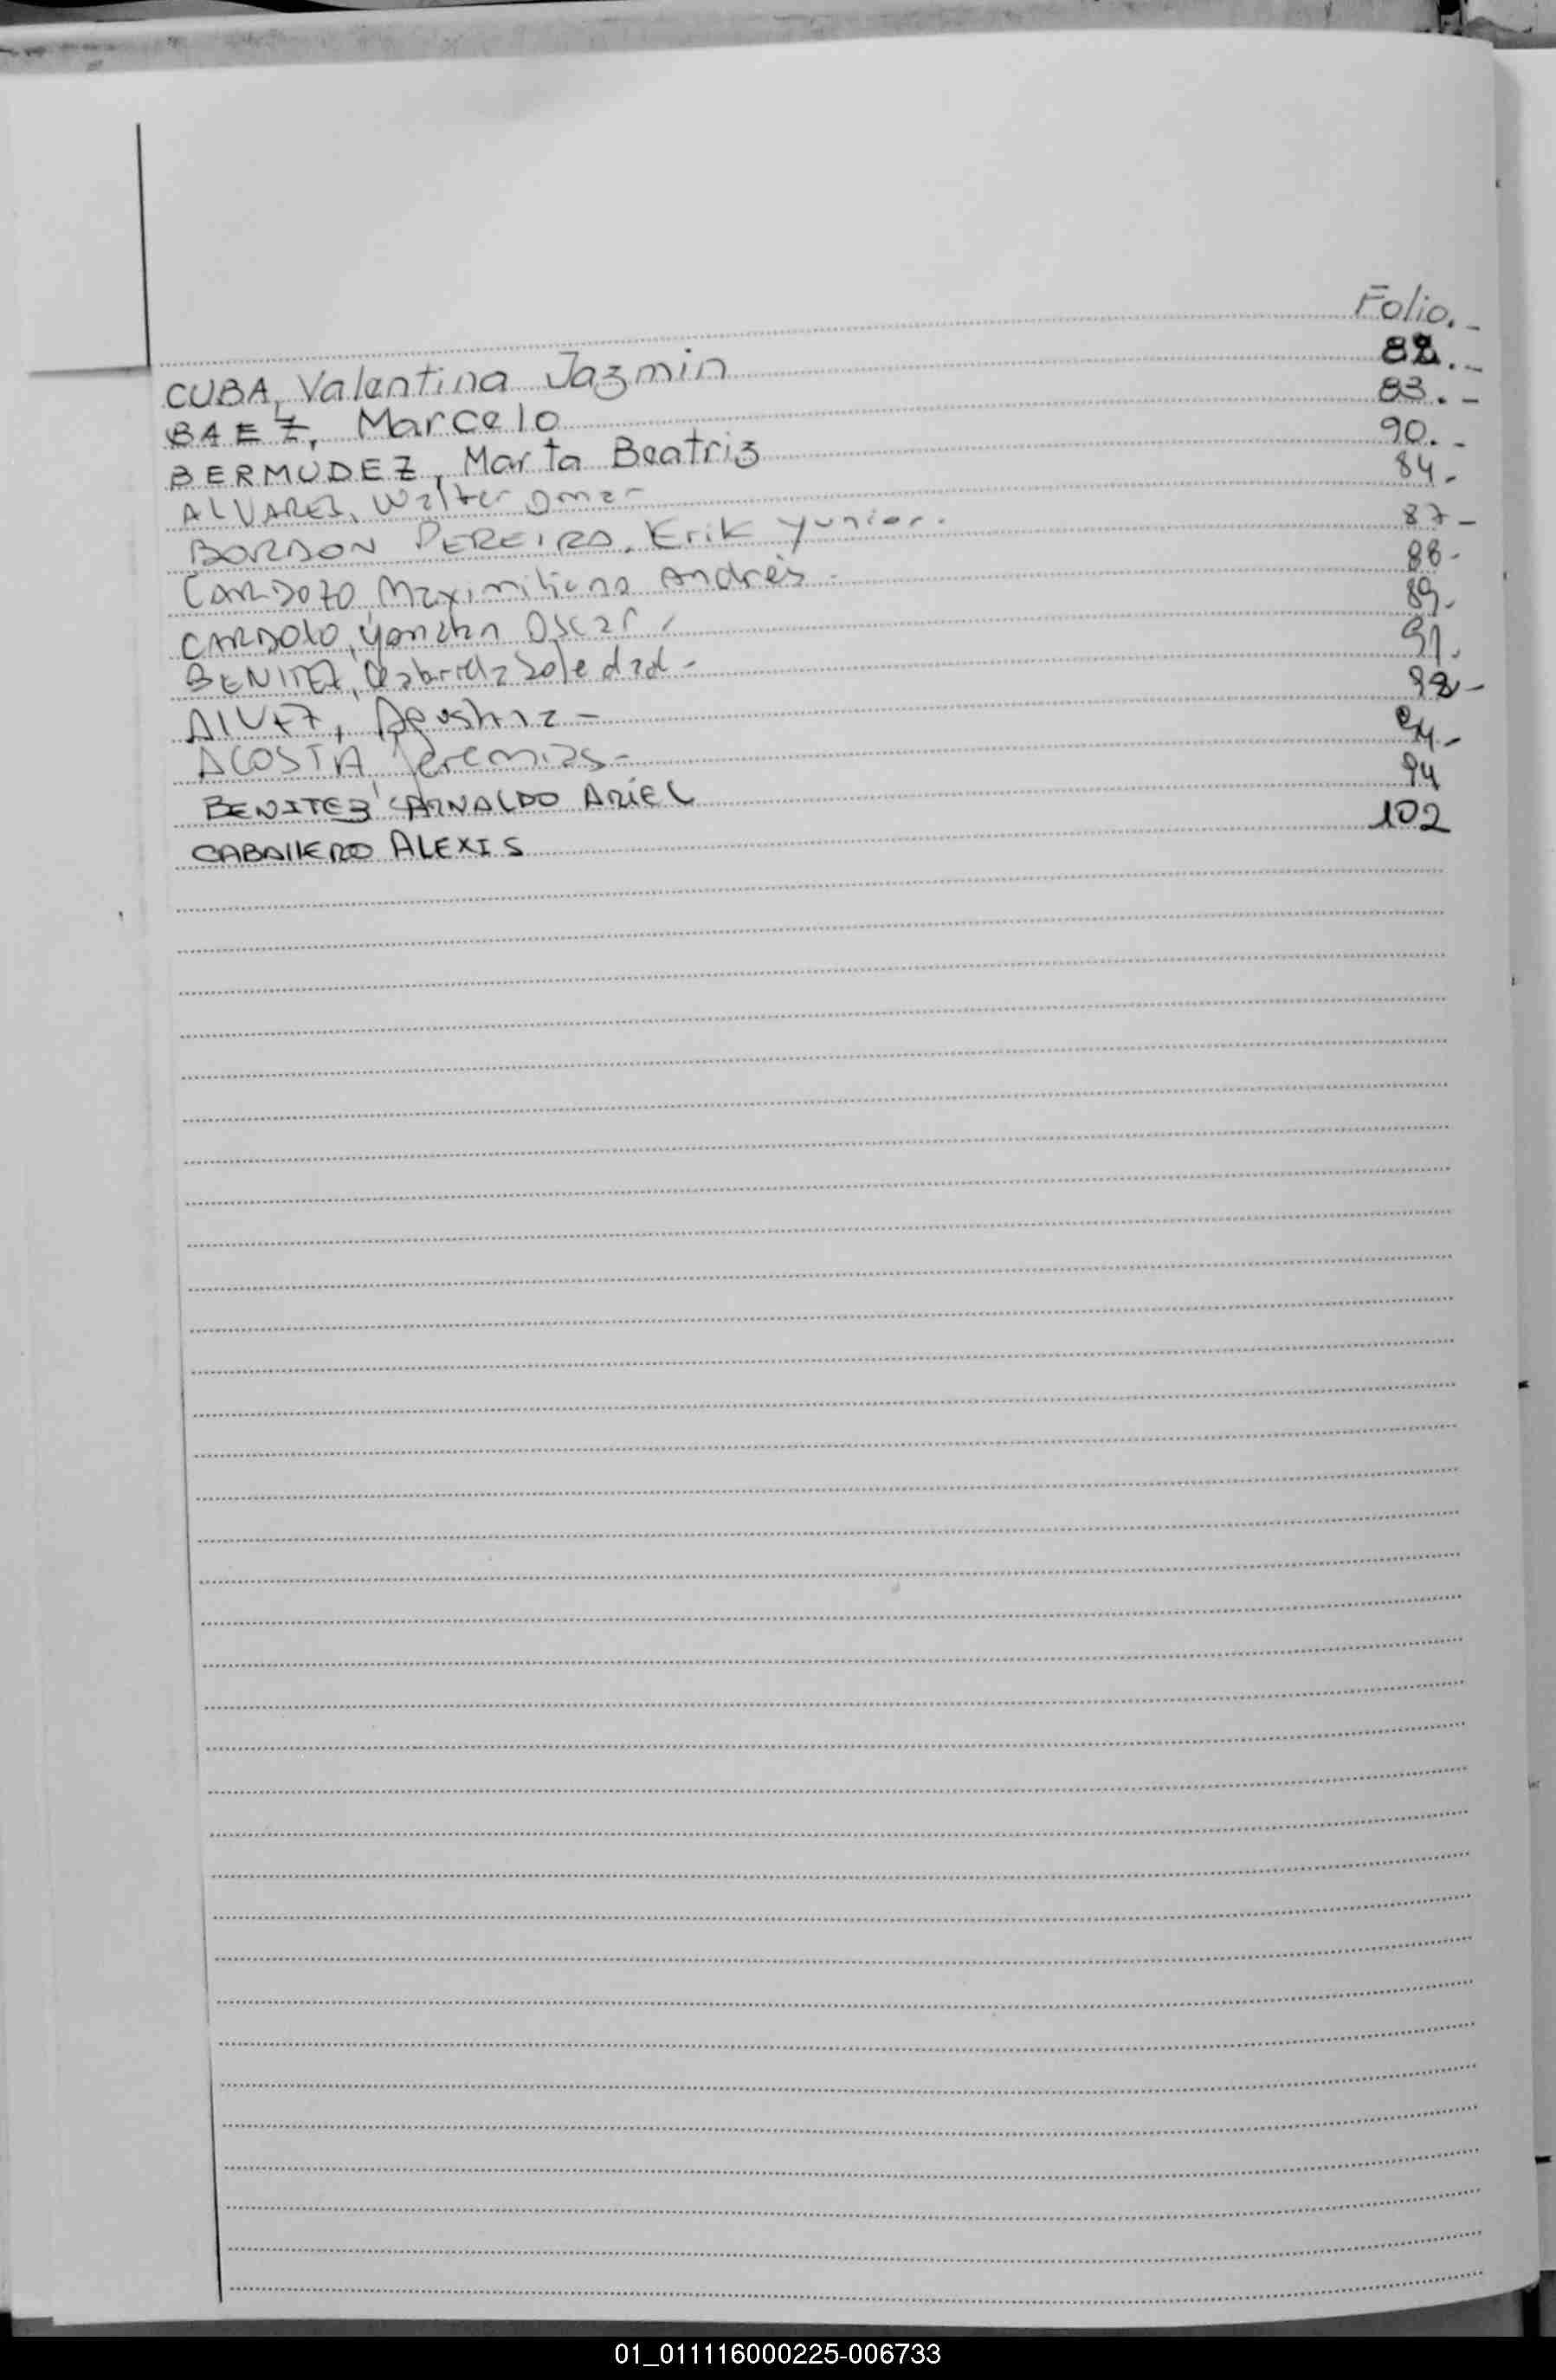 Folio.-
CUBA, Valentina Jazmin 82.-
BAEZ, Marcelo 83.-
BERMUDEZ, Marta Beatriz 90.-
ALVAREZ, Walter Omar 84.-
BORDON PEREIRA, Erik Yunior. 87-
CARDOZO, Maximiliano Andrés. 88-
CARDOZO, Oscar 89.
BENITEZ, Gabriela Soledad- 91.
ALVEZ, Agostina-
ACOSTA, Jeremias-
BENITEZ ARNALDO ARIEL 94
CABALLERO ALEXIS 102
01_011116000225-006733